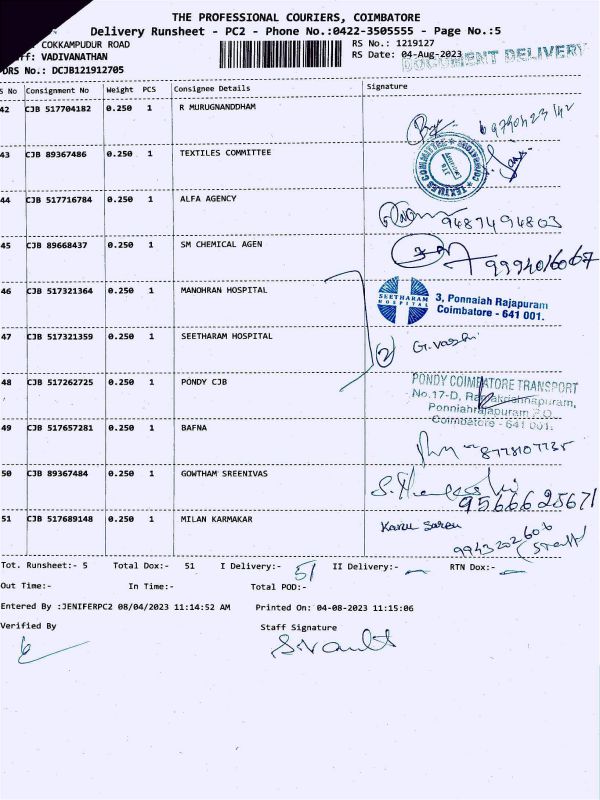 THE PROFESSIONAL COURIERS, COIMBATORE
Delivery Runsheet - PC2 - Phone No.:0422-3505555 - Page No.:5
COKKAMPUDUR ROAD
RS No.: 1219127
VADIVANATHAN
RS Date: 04-Aug-2023
DOCUMENT DELIVERY
DRS No.: DCJB121912705
S No Consignment No Weight PCS Consignee Details Signature
42 CJB 517704182 0.250 1 R MURUGNANDDHAM
43 CJB 89367486 0.250 1 TEXTILES COMMITTEE
TEXTILES COMMITTEE
44 CJB 517716784 0.250 1 ALFA AGENCY
9487494803
45 CJB 89668437 0.250 1 SM CHEMICAL AGEN
9994016067
46 CJB 517321364 0.250 1 MANOHRAN HOSPITAL
SEETHARAM HOSPITAL
3, Ponnaiah Rajapuram
Coimbatore - 641 001.
47 CJB 517321359 0.250 1 SEETHARAM HOSPITAL
2
48 CJB 517262725 0.250 1 PONDY CJB
PONDY COIMBATORE TRANSPORT
No.17-D, Ramakrishnapuram,
Ponniahrajapuram P.O.
Coimbatore - 641 001.
49 CJB 517657281 0.250 1 BAFNA
8778107735
50 CJB 89367484 0.250 1 GOWTHAM SREENIVAS
9566628671
51 CJB 517689148 0.250 1 MILAN KARMAKAR
9943202606
(Staff)
Tot. Runsheet:- 5 Total Dox:- 51 I Delivery:- 51 II Delivery:- RTN Dox:-
Out Time:- In Time:- Total POD:-
Entered By :JENIFERPC2 08/04/2023 11:14:52 AM Printed On: 04-08-2023 11:15:06
Verified By Staff Signature